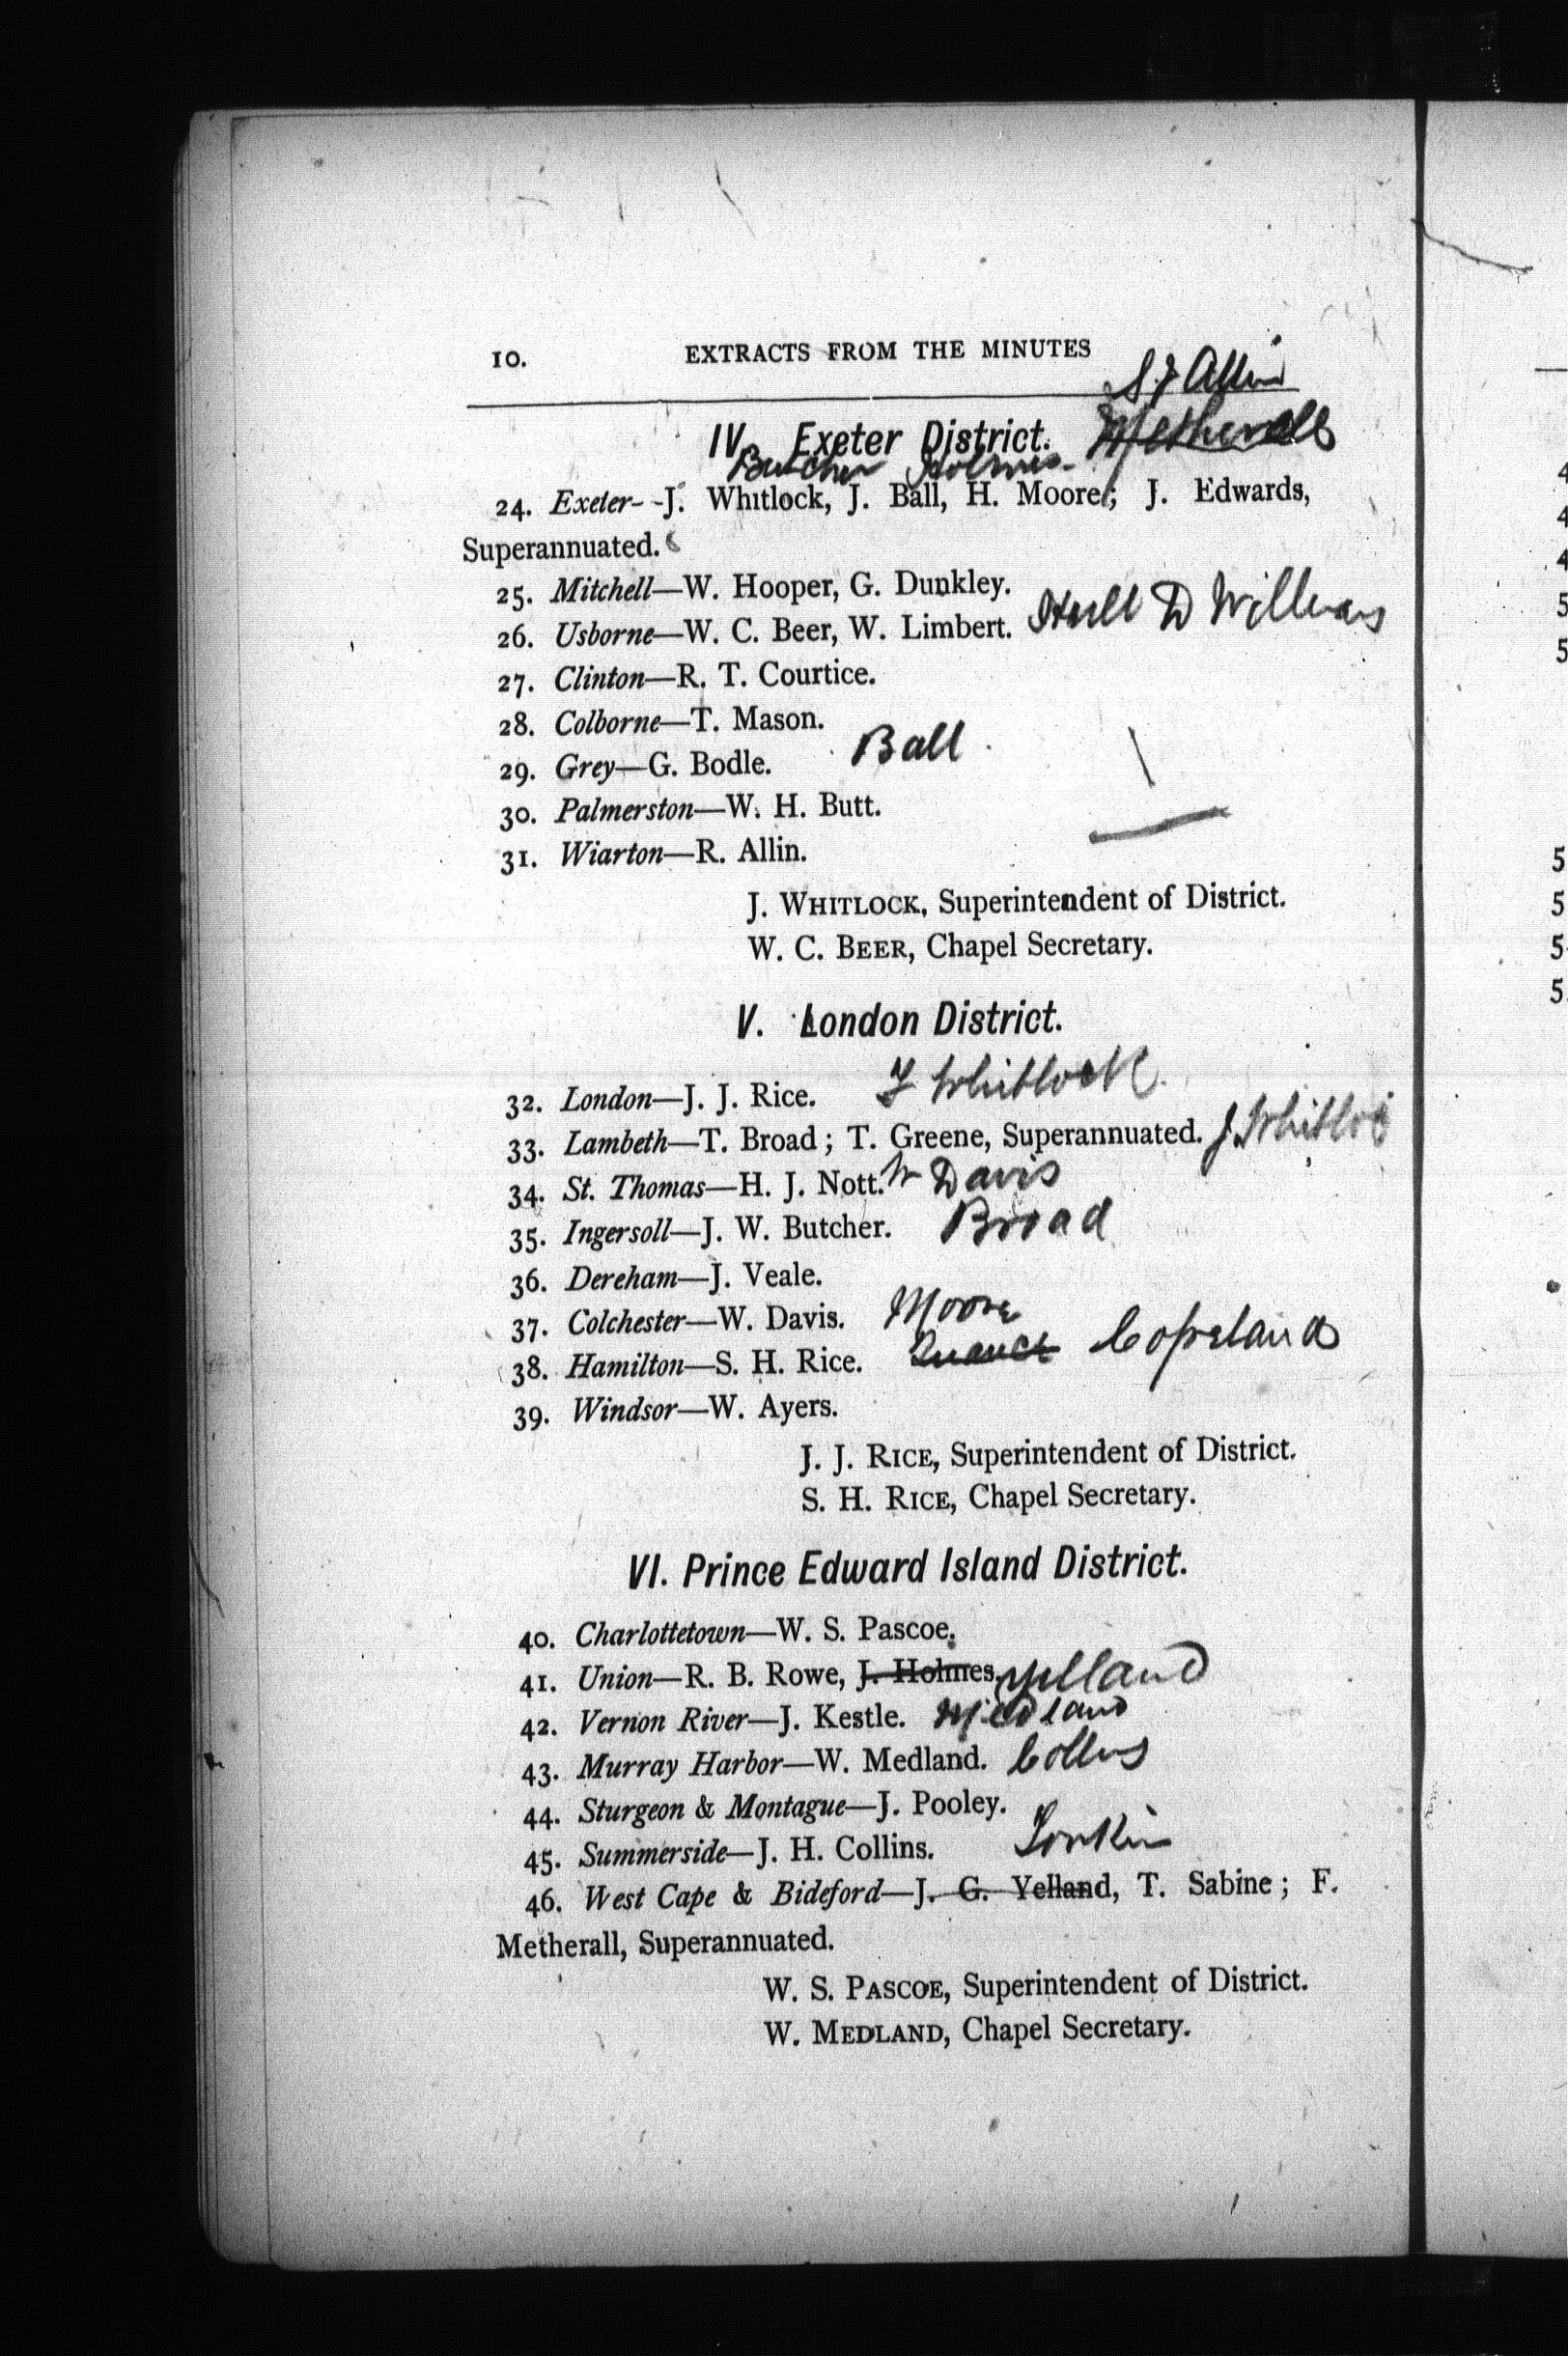 10. EXTRACTS FROM THE MINUTES
S. J. Allin
IV. Exeter District. Metherall
Butcher Holmes
24. Exeter--J. Whitlock, J. Ball, H. Moore; J. Edwards,
Superannuated.
25. Mitchell—W. Hooper, G. Dunkley.
26. Usborne—W. C. Beer, W. Limbert. Hull D Williams
27. Clinton—R. T. Courtice.
28. Colborne—T. Mason.
29. Grey—G. Bodle. Ball
30. Palmerston—W. H. Butt.
31. Wiarton—R. Allin.
J. WHITLOCK, Superintendent of District.
W. C. BEER, Chapel Secretary.
V. London District.
32. London—J. J. Rice. Whitlock
33. Lambeth—T. Broad; T. Greene, Superannuated. J. Whitloc
34. St. Thomas—H. J. Nott. W Davis
35. Ingersoll—J. W. Butcher. Broad
36. Dereham—J. Veale.
37. Colchester—W. Davis. Moore
38. Hamilton—S. H. Rice. Quance Copeland
39. Windsor—W. Ayers.
J. J. RICE, Superintendent of District.
S. H. RICE, Chapel Secretary.
VI. Prince Edward Island District.
40. Charlottetown—W. S. Pascoe.
41. Union—R. B. Rowe, J. Holmes. Yelland
42. Vernon River—J. Kestle. Medland
43. Murray Harbor—W. Medland. Collins
44. Sturgeon & Montague—J. Pooley.
45. Summerside—J. H. Collins.
46. West Cape & Bideford—J. G. Yelland, T. Sabine; F.
Metherall, Superannuated.
W. S. PASCOE, Superintendent of District.
W. MEDLAND, Chapel Secretary.